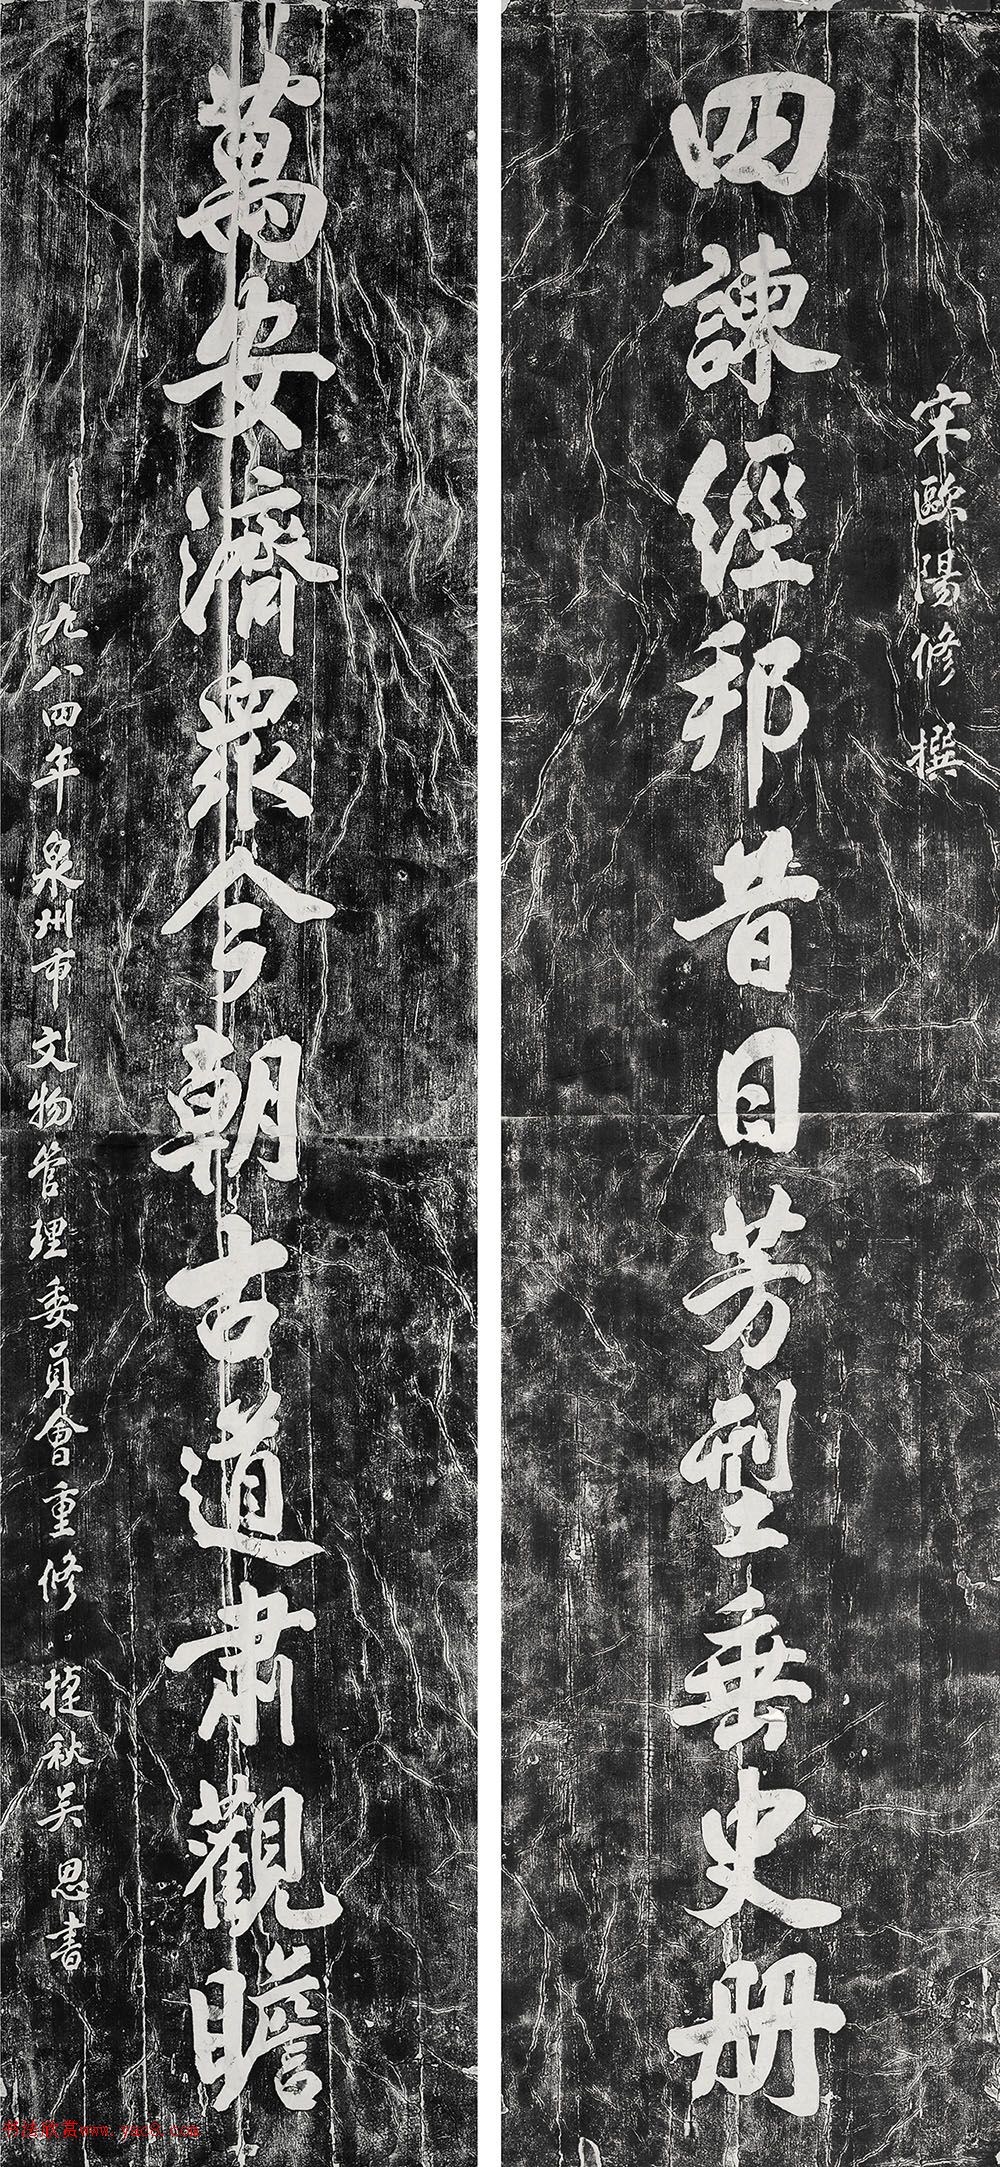 宋歐陽修撰
四諫經邦昔日芳型垂史册
萬安濟眾今朝古道肅觀瞻
一九八四年泉州市文物管理委員會重修 捷秋吴思書
书法欣赏www.yac8.com